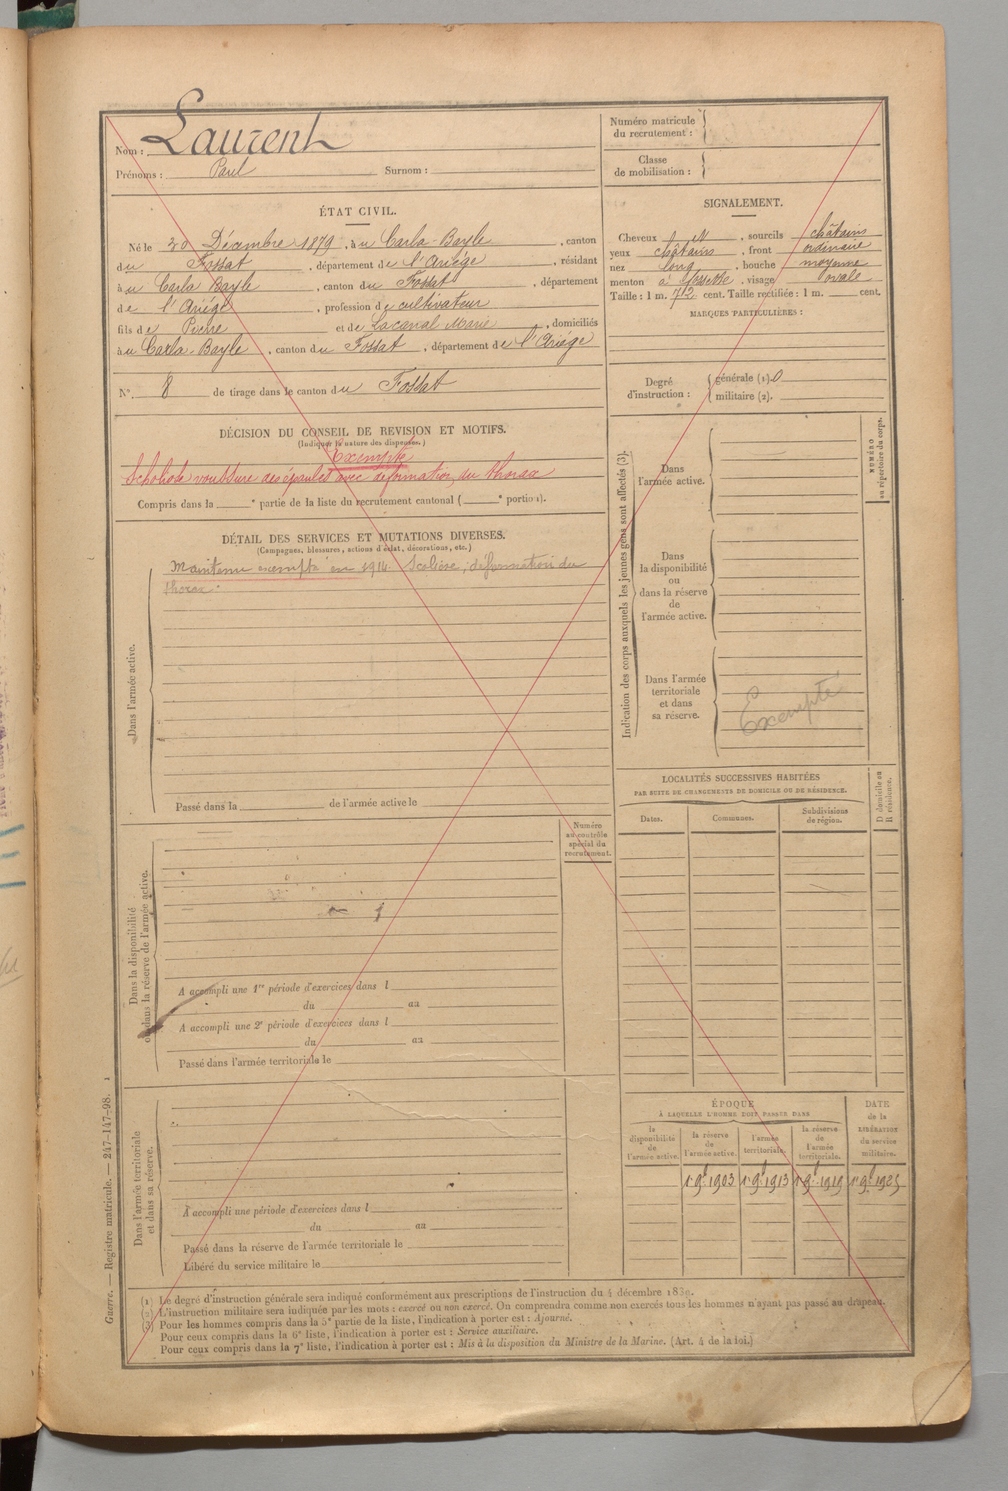 Nom : Laurent
Prénoms : Paul Surnom :
Numéro matricule
du recrutement :
Classe
de mobilisation :
ÉTAT CIVIL.
Né le 30 Décembre 1879, à u Carla-Bayle, canton
du Fossat, département de l'Ariége, résidant
à u Carla Bayle, canton du Fossat, département
de l'Ariége, profession de cultivateur
fils de Pierre et de Lacanal Marie, domiciliés
à u Carla-Bayle, canton du Fossat, département de l'Ariége
N° 8 de tirage dans le canton du Fossat
SIGNALEMENT.
Cheveux et, sourcils châtains
yeux châtains, front ordinaire
nez long, bouche moyenne
menton à fossette, visage ovale
Taille : 1 m. 712 cent. Taille rectifiée : 1 m. cent.
MARQUES PARTICULIÈRES :
Degré
d'instruction :
générale (1) 0
militaire (2).
DÉCISION DU CONSEIL DE REVISION ET MOTIFS.
(Indiquer la nature des dispenses.)
Exempté
Scholiose voussure des épaules avec déformation du thorax
Compris dans la e partie de la liste du recrutement cantonal ( e portion).
DÉTAIL DES SERVICES ET MUTATIONS DIVERSES.
(Campagnes, blessures, actions d'éclat, décorations, etc.)
Dans l'armée active.
Maintenu exempté en 1914. Scoliose, déformation du
thorax.
Passé dans la de l'armée active le
Indication des corps auxquels les jeunes gens sont affectés (3).
Dans
l'armée active.
Dans
la disponibilité
ou
dans la réserve
de
l'armée active.
Dans l'armée
territoriale
et dans
sa réserve.
Exempté
NUMÉRO
au répertoire du corps.
LOCALITÉS SUCCESSIVES HABITÉES
PAR SUITE DE CHANGEMENTS DE DOMICILE OU DE RÉSIDENCE.
Dates. Communes. Subdivisions
de région.
D domicile ou
R résidence.
Numéro
au contrôle
spécial du
recrutement.
Dans la disponibilité
ou dans la réserve de l'armée active.
A accompli une 1re période d'exercices dans l
du au
A accompli une 2e période d'exercices dans l
du au
Passé dans l'armée territoriale le
Dans l'armée territoriale
et dans sa réserve.
A accompli une période d'exercices dans l
du au
Passé dans la réserve de l'armée territoriale le
Libéré du service militaire le
ÉPOQUE
À LAQUELLE L'HOMME DOIT PASSER DANS
la
disponibilité
de
l'armée active.
la réserve
de
l'armée active.
l'armée
territoriale.
la réserve
de
l'armée
territoriale.
DATE
de la
LIBÉRATION
du service
militaire.
1er 9bre 1903 1er 9bre 1913 1er 9bre 1919 1er 9bre 1925
Guerre. — Registre matricule. — 247-147-98.
(1) Le degré d'instruction générale sera indiqué conformément aux prescriptions de l'instruction du 4 décembre 1889.
(2) L'instruction militaire sera indiquée par les mots : exercé ou non exercé. On comprendra comme non exercés tous les hommes n'ayant pas passé au drapeau.
(3) Pour les hommes compris dans la 5e partie de la liste, l'indication à porter est : Ajourné.
Pour ceux compris dans la 6e liste, l'indication à porter est : Service auxiliaire.
Pour ceux compris dans la 7e liste, l'indication à porter est : Mis à la disposition du Ministre de la Marine. (Art. 4 de la loi.)